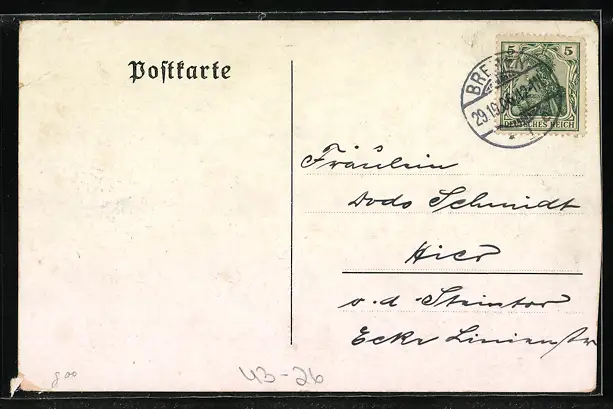 Postkarte
5 5
DEUTSCHES REICH
BREMEN
29.10.06.12-1N
Fräulein
Dodo Schmidt
Hier
v. d. Steintor
Ecke Linienstr
800
43-26